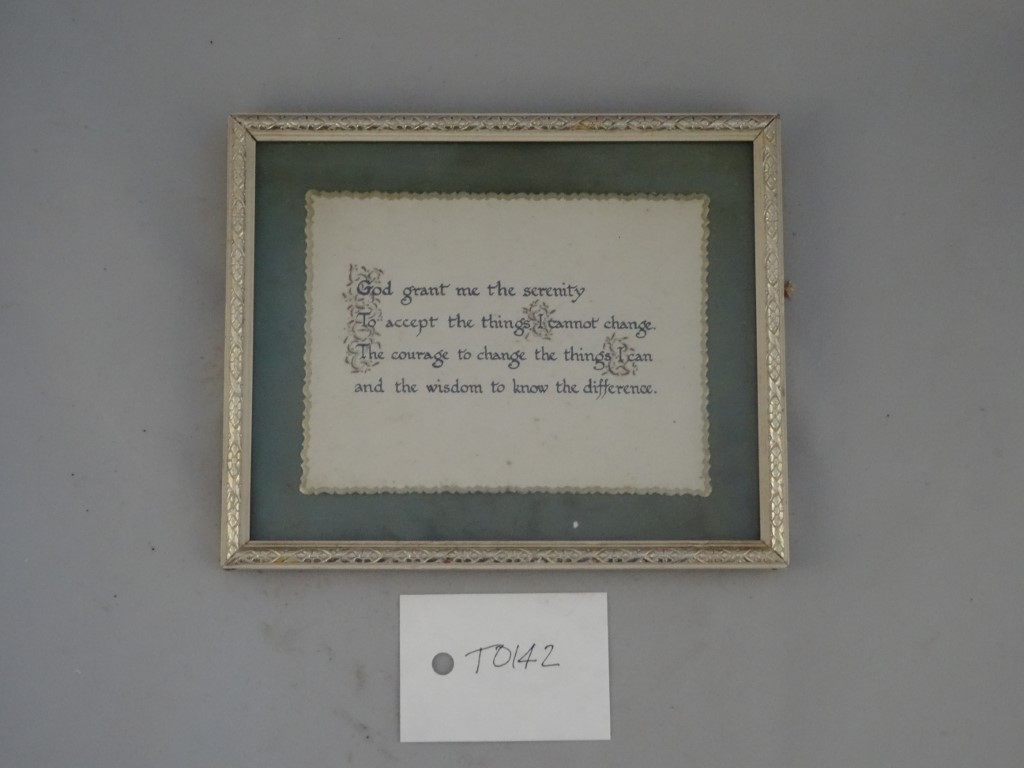 God grant me the serenity
To accept the things I cannot change.
The courage to change the things I can
and the wisdom to know the difference.
T0142